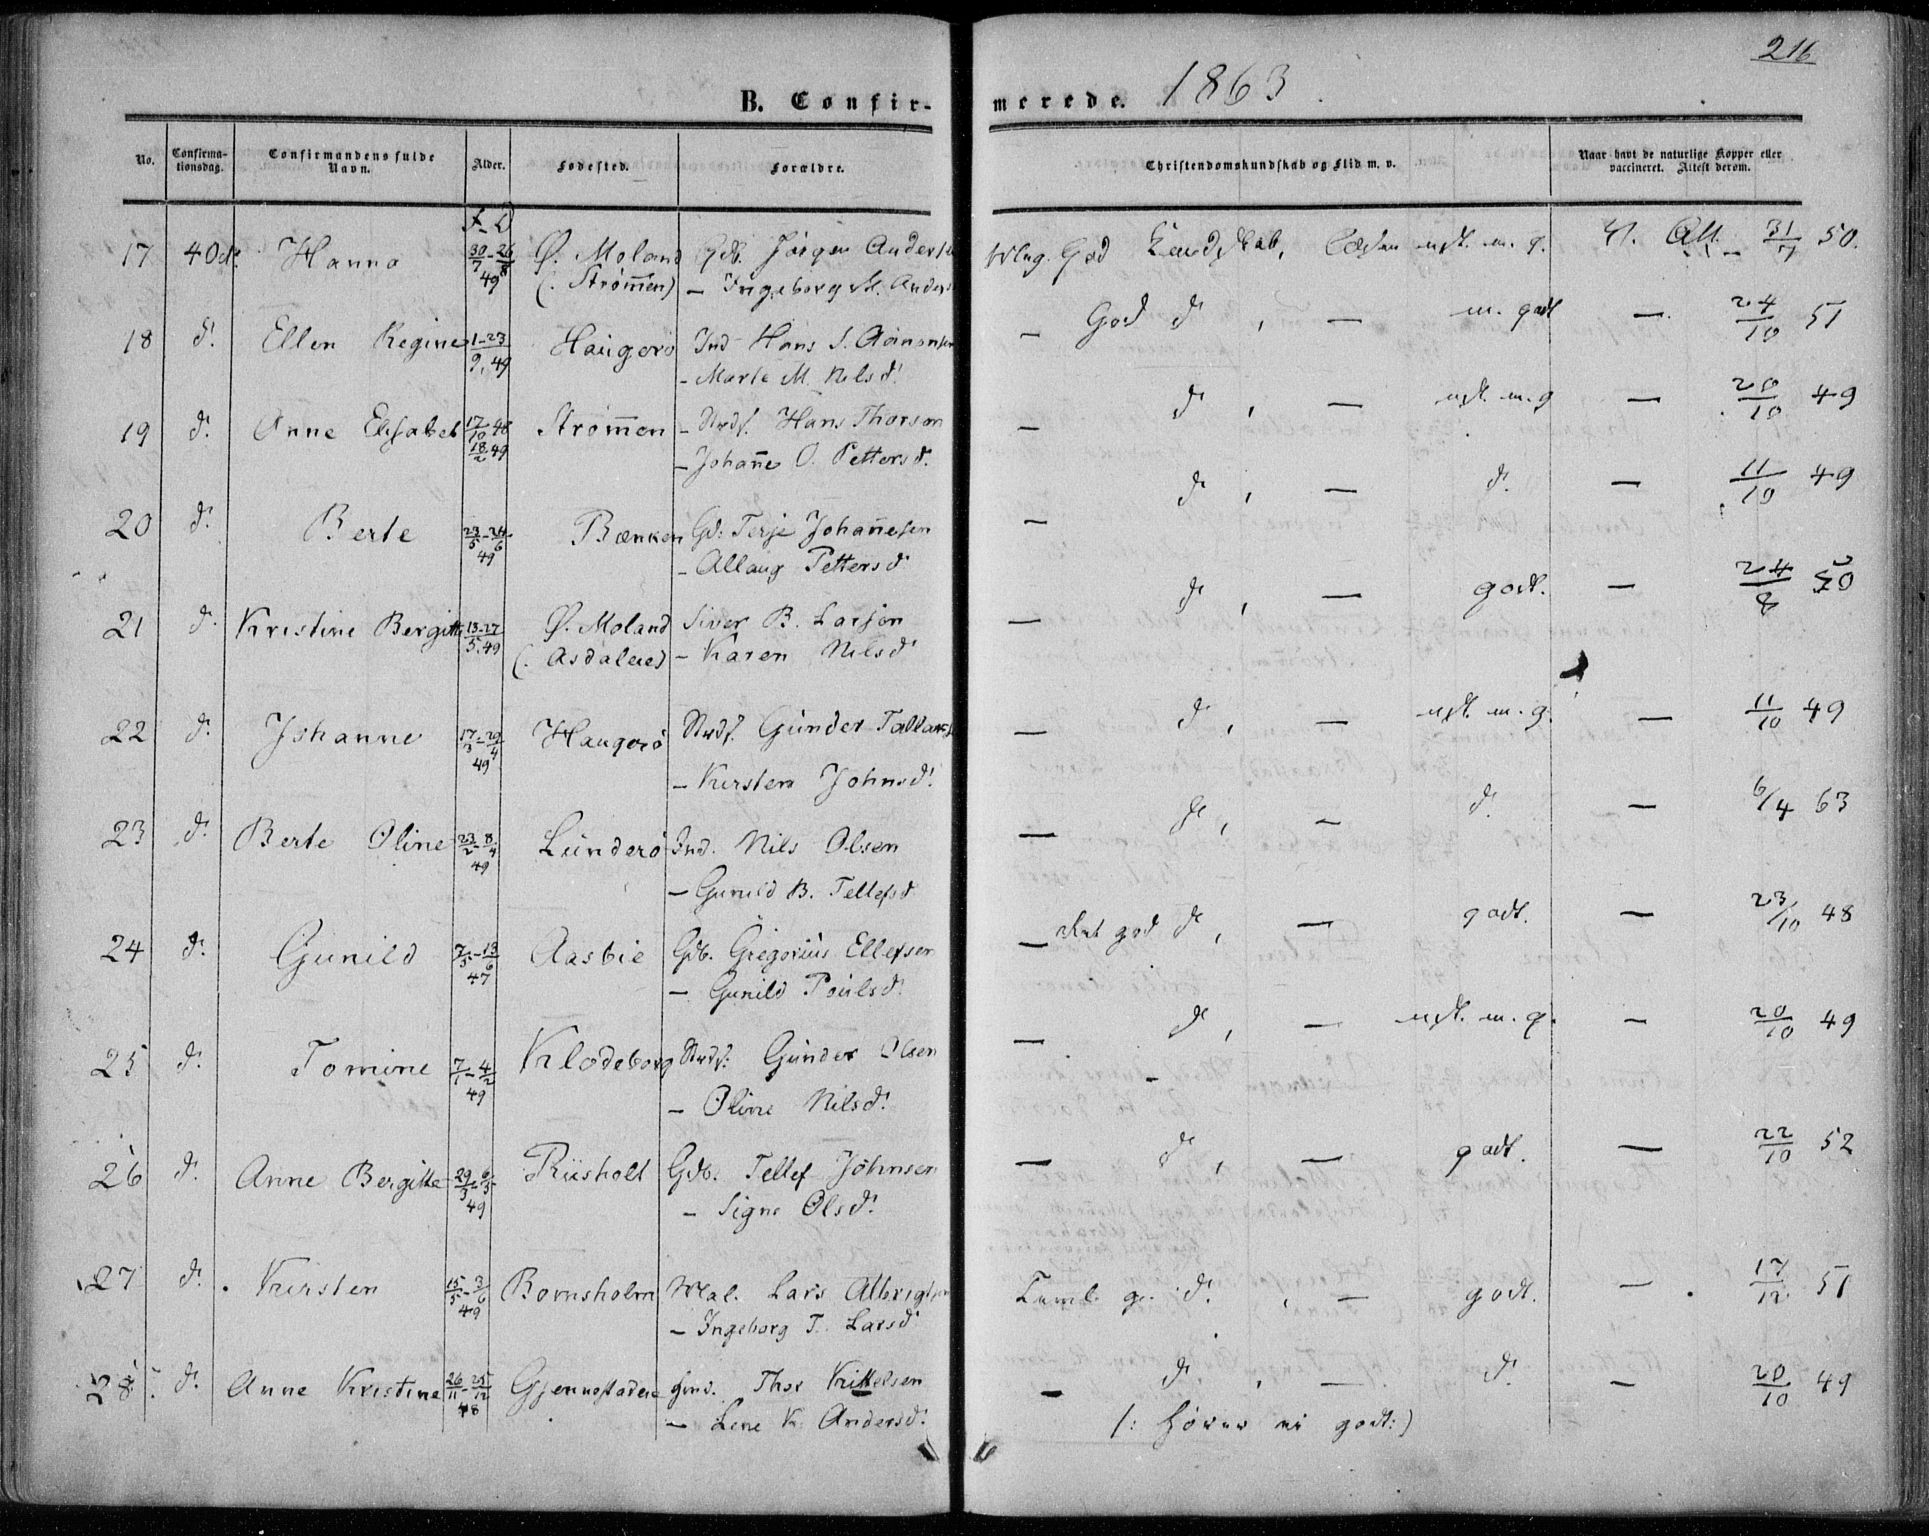 216
B. Confir-
merede. 1863.
No.
Confirma-
tionsdag.
Confirmandens fulde
Navn.
Alder.
Fødested.
Forældre.
Christendomskundskab og Flid m. v.
Naar havt de naturlige Kopper eller
vaccineret. Attest derom.
F. D
17 Hanna 30/7 - 26/8 49 Ø. Moland Gdb. Jørgen Anders
(: Strømmen) - Ingeborg M. Anders
God Kundskab, m. g. Att. 31/7 50.
18 d. Ellen Regine 1-23 9, 49 Haugerø Ind Hans S. Aanonsen
- Marte M. Nilsd.
- God d , — m. godt — 24/10 51
19 d. Anne Elisabet 17/10 48 18/2 49 Strømmen - Strds. Hans Thorson
- Johanne O. Pettersd.
- d , — m. g — 20/10 49
20 d. Berte 23/5 - 24/6 49 Bænken Gd: Terje Johannesen
- Allaug Pettersd
- d , — d. — 11/10 49
21 d. Kristine Bergitte 13-27 5. 49 Ø. Moland Siver B. Larson
(: Asdalene) - Karen Nilsd
- d , — godt. — 24/8 50
22 d. Johanne 17/3 - 29/4 49 Haugerø Strds. Gunder Tallaks
- Kirsten Johnsd.
- d , — m. g. — 11/10 49
23 d. Berte Oline 23/2 - 8/4 49 Lunderø Ind. Nils Olsen
- Gunild B. Tellefsd
- d , — d. — 6/4 63
24 d. Gunild 7/5 - 13/6 47 Aasbie Gdb. Gregorius Ellefsen
- Gunild Poulsd.
- god d , — godt. — 23/10 48
25 d. Tomine 7/1 - 4/2 49 Klodeborg Strds: Gunder Olsen
- Oline Nilsd.
- d , — m. g. — 20/10 49
26 d. Anne Bergitte 29/3 - 6/5 49 Riisholt Gdb. Tellef Johnsen
- Signe Olsd.
- d , — godt. — 22/10 52
27 d. Kirsten 15/5 - 3/6 49 Bornsholm Mal. Lars Albrigtsen
- Ingeborg T. Larsd
Teml. g. d. , — godt. — 17/12 51
28. d. Anne Kristine 26/11 - 25/12 48 Gjennestadene Thor Kittelsen
- Lene K. Andersd.
- d , — d. — 20/10 49
(: Hører ei godt:)